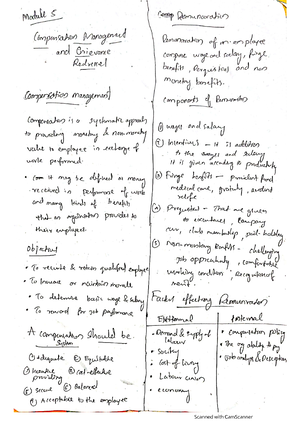 Module 5
Compensation Management
and Grievance
Redressal
Compensation management
Compensation is a systematic approach
to providing monetary & non monetary
value to employees in exchange of
work performed.
• Com It may be defined as money
received in performance of work
and many kinds of benefits
that an organization provides to
their employees.
Objectives
• To recruite & retain qualified employee
• To increase or maintain morale
• To determine basic wage & salary
• To reward for job performance
A compensation should be
System
① adequate ② Equitable
③ Incentive ④ Cost-effective
providing
⑤ Secure ⑥ Balanced
⑦ Acceptable to the employee
Comp Remuneration
Remuneration of an employee
compose wage and salary, fringe
benefits, perquisites and non
monetary benefits.
Components of Remuneration
① Wages and salary
② Incentives - It is addition
to the wages and salary
it is given according to productivity
③ Fringe benefits - provident fund
medical care, gratuity, accident
relife
④ Perquisites - That are given
to executives, company
car, club membership, paid-holiday
⑤ Non-monetary benefits - challenging
job opportunity, comfortable
working condition, recognition of
merit.
Factor effecting Remuneration
External
• Demand & supply of
labour
• Society
• Cost of living
• Labour union
• economy
Internal
• compensation policy
• The org ability to pay
• Job analysis & description
Scanned with CamScanner